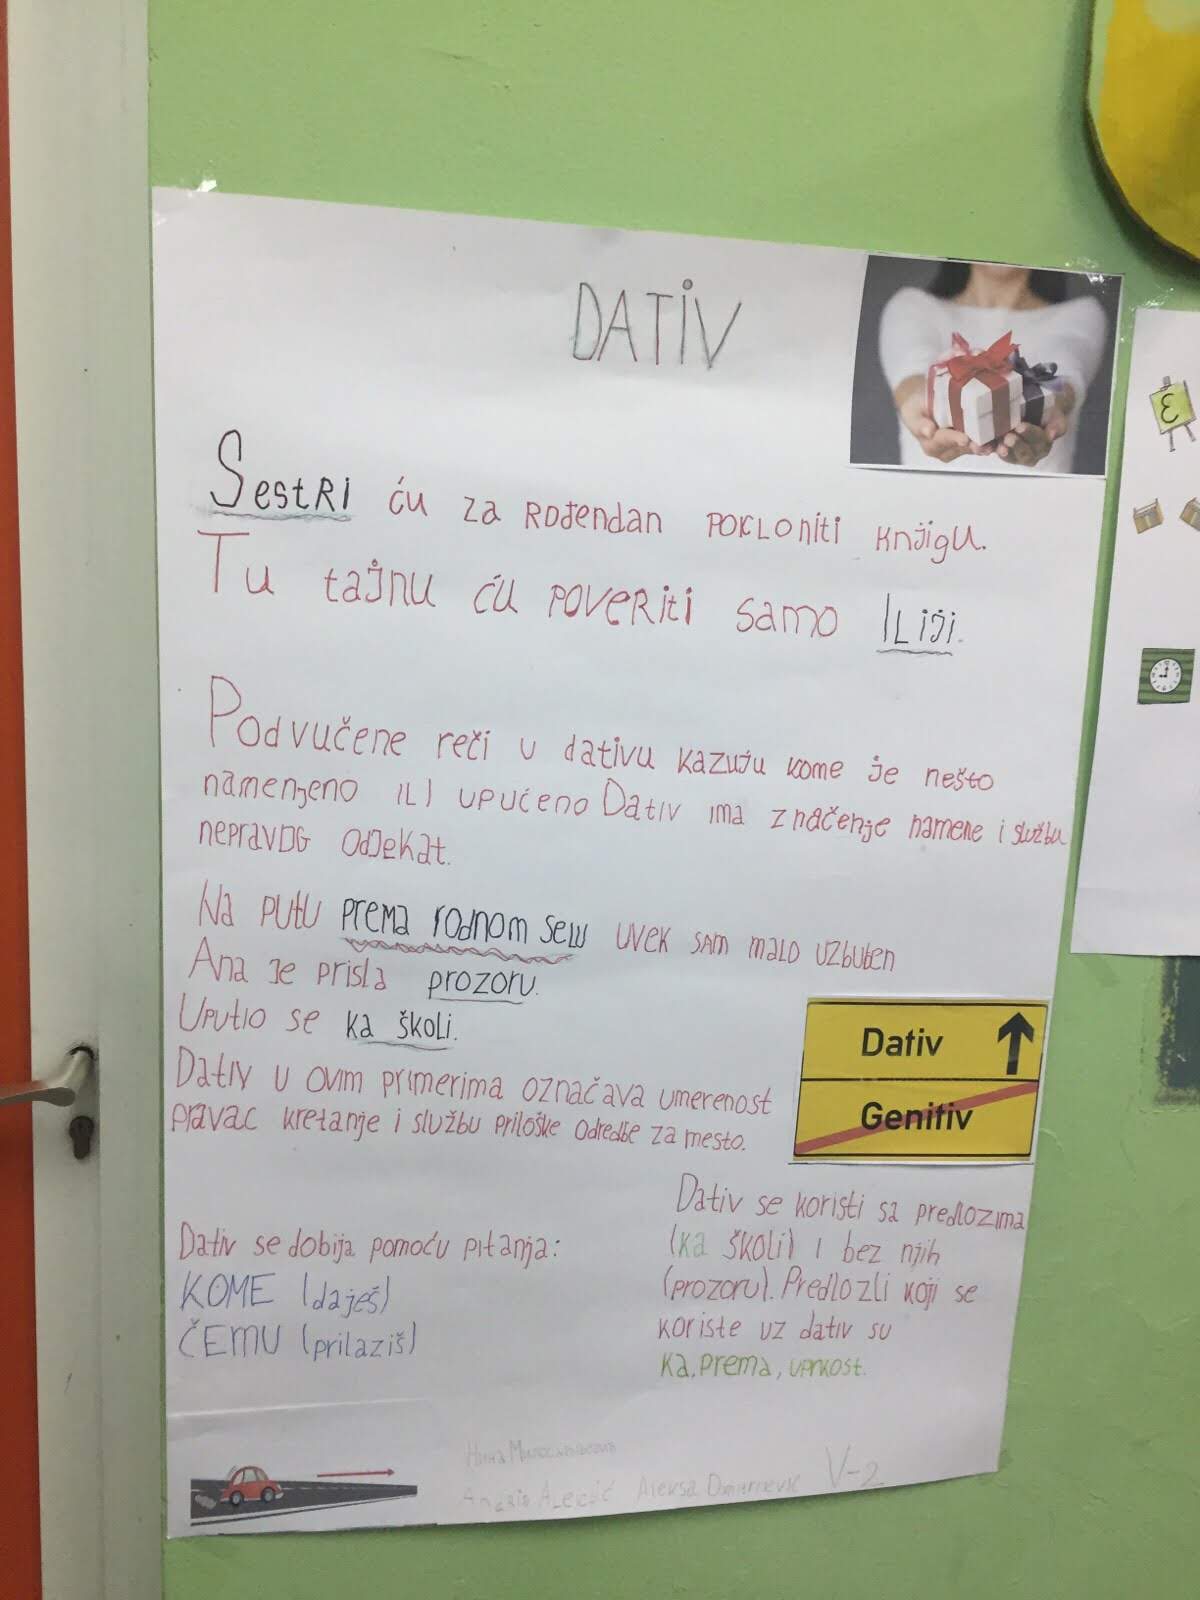 DATIV
Sestri ću za rođendan pokloniti knjigu.
Tu tajnu ću poveriti samo Iliji.
Podvučene reči u dativu kazuju kome je nešto
namenjeno ili upućeno Dativ ima značenje namene i službu
nepravog odjekat.
Na putu prema rodnom selu uvek sam malo uzbuten
Ana je prisla prozoru.
Uputio se ka školi.
Dativ u ovim primerima označava umerenost
pravac kretanje i službu priloške odredbe za mesto.
Dativ
Genitiv
Dativ se dobija pomoću pitanja:
KOME (daješ)
ČEMU (prilaziš)
Dativ se koristi sa predlozima
(ka školi) i bez njih
(prozoru). Predlozli koji se
koriste uz dativ su
ka, prema, uprkost.
Aleksa V-2